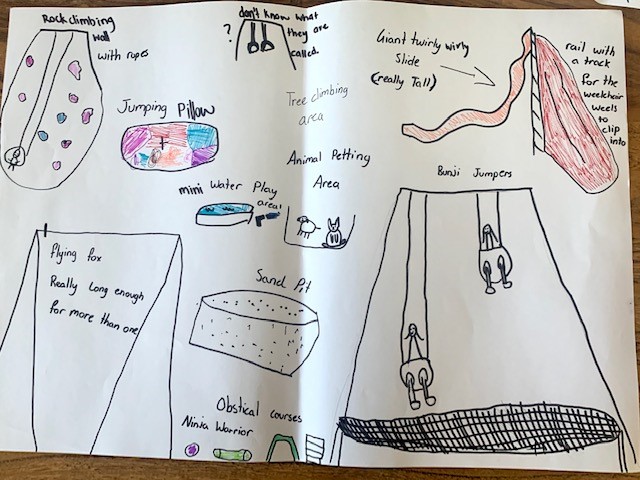 Rock climbing
Wall
with ropes
don't know what
they are
called.
?
Giant twirly wirly
Slide
(really Tall)
rail with
a track
For the
weelchair
weels
to
clip
into
Jumping Pillow
Tree climbing
area
Animal Petting
Area
mini Water Play
area!
Bunji Jumpers
flying fox
Really long enough
for more than one
Sand Pit
Obstical courses
Ninja Warrior